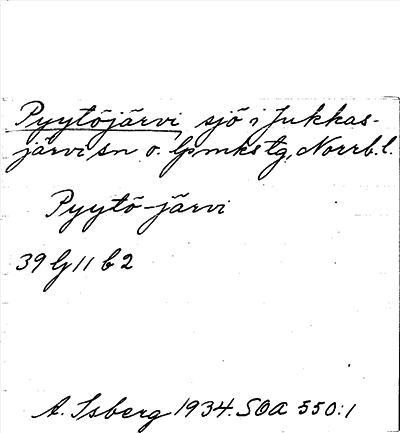 Pyytöjärvi, sjö i Jukkas-
järvi sn o. lpmkstg, Norrb. l.
Pyytö-järvi
39 G 11 b 2
A. Isberg 1934. SOA 550:1